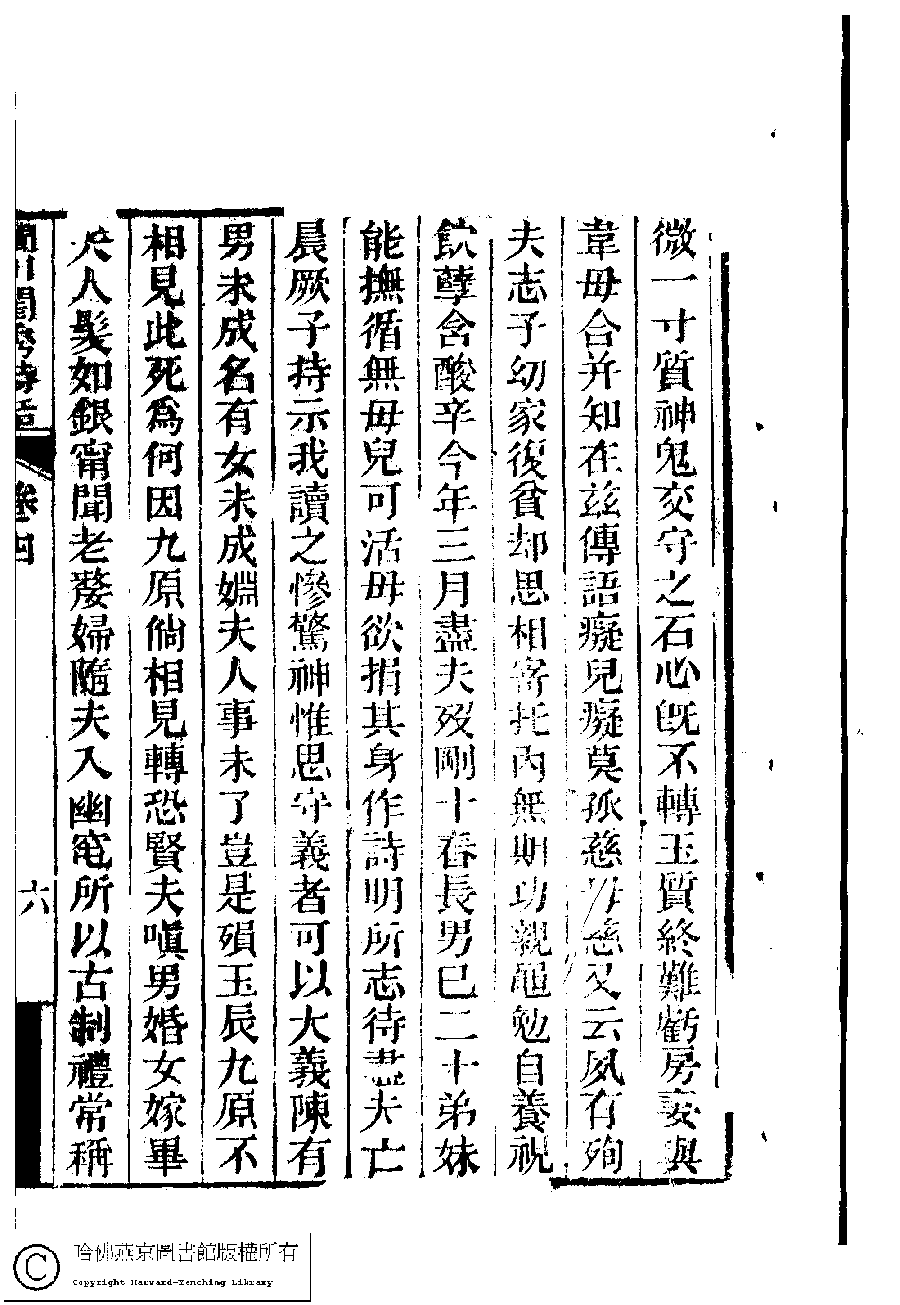 微一寸質神鬼交守之石心旣不轉玉質終難虧房妾與
韋母合并知在兹傳語癡兒癡莫孤慈母慈又云夙有殉
夫志子幼家復貧却思相寄托內無期功親黽勉自養視
飮孽含酸辛今年三月盡夫歿剛十春長男巳二十弟妹
能撫循無母兒可活母欲捐其身作詩明所志待盡夫亡
晨厥子持示我讀之慘驚神惟思守義者可以大義陳有
男未成名有女未成婣夫人事未了豈是殞玉辰九原不
相見此死爲何因九原倘相見轉恐賢夫嗔男婚女嫁畢
夫人髮如銀甯聞老嫠婦隨夫入幽窀所以古制禮常稱
閨秀詩話 卷四 六
哈佛燕京圖書館版權所有
Copyright Harvard-Yenching Library